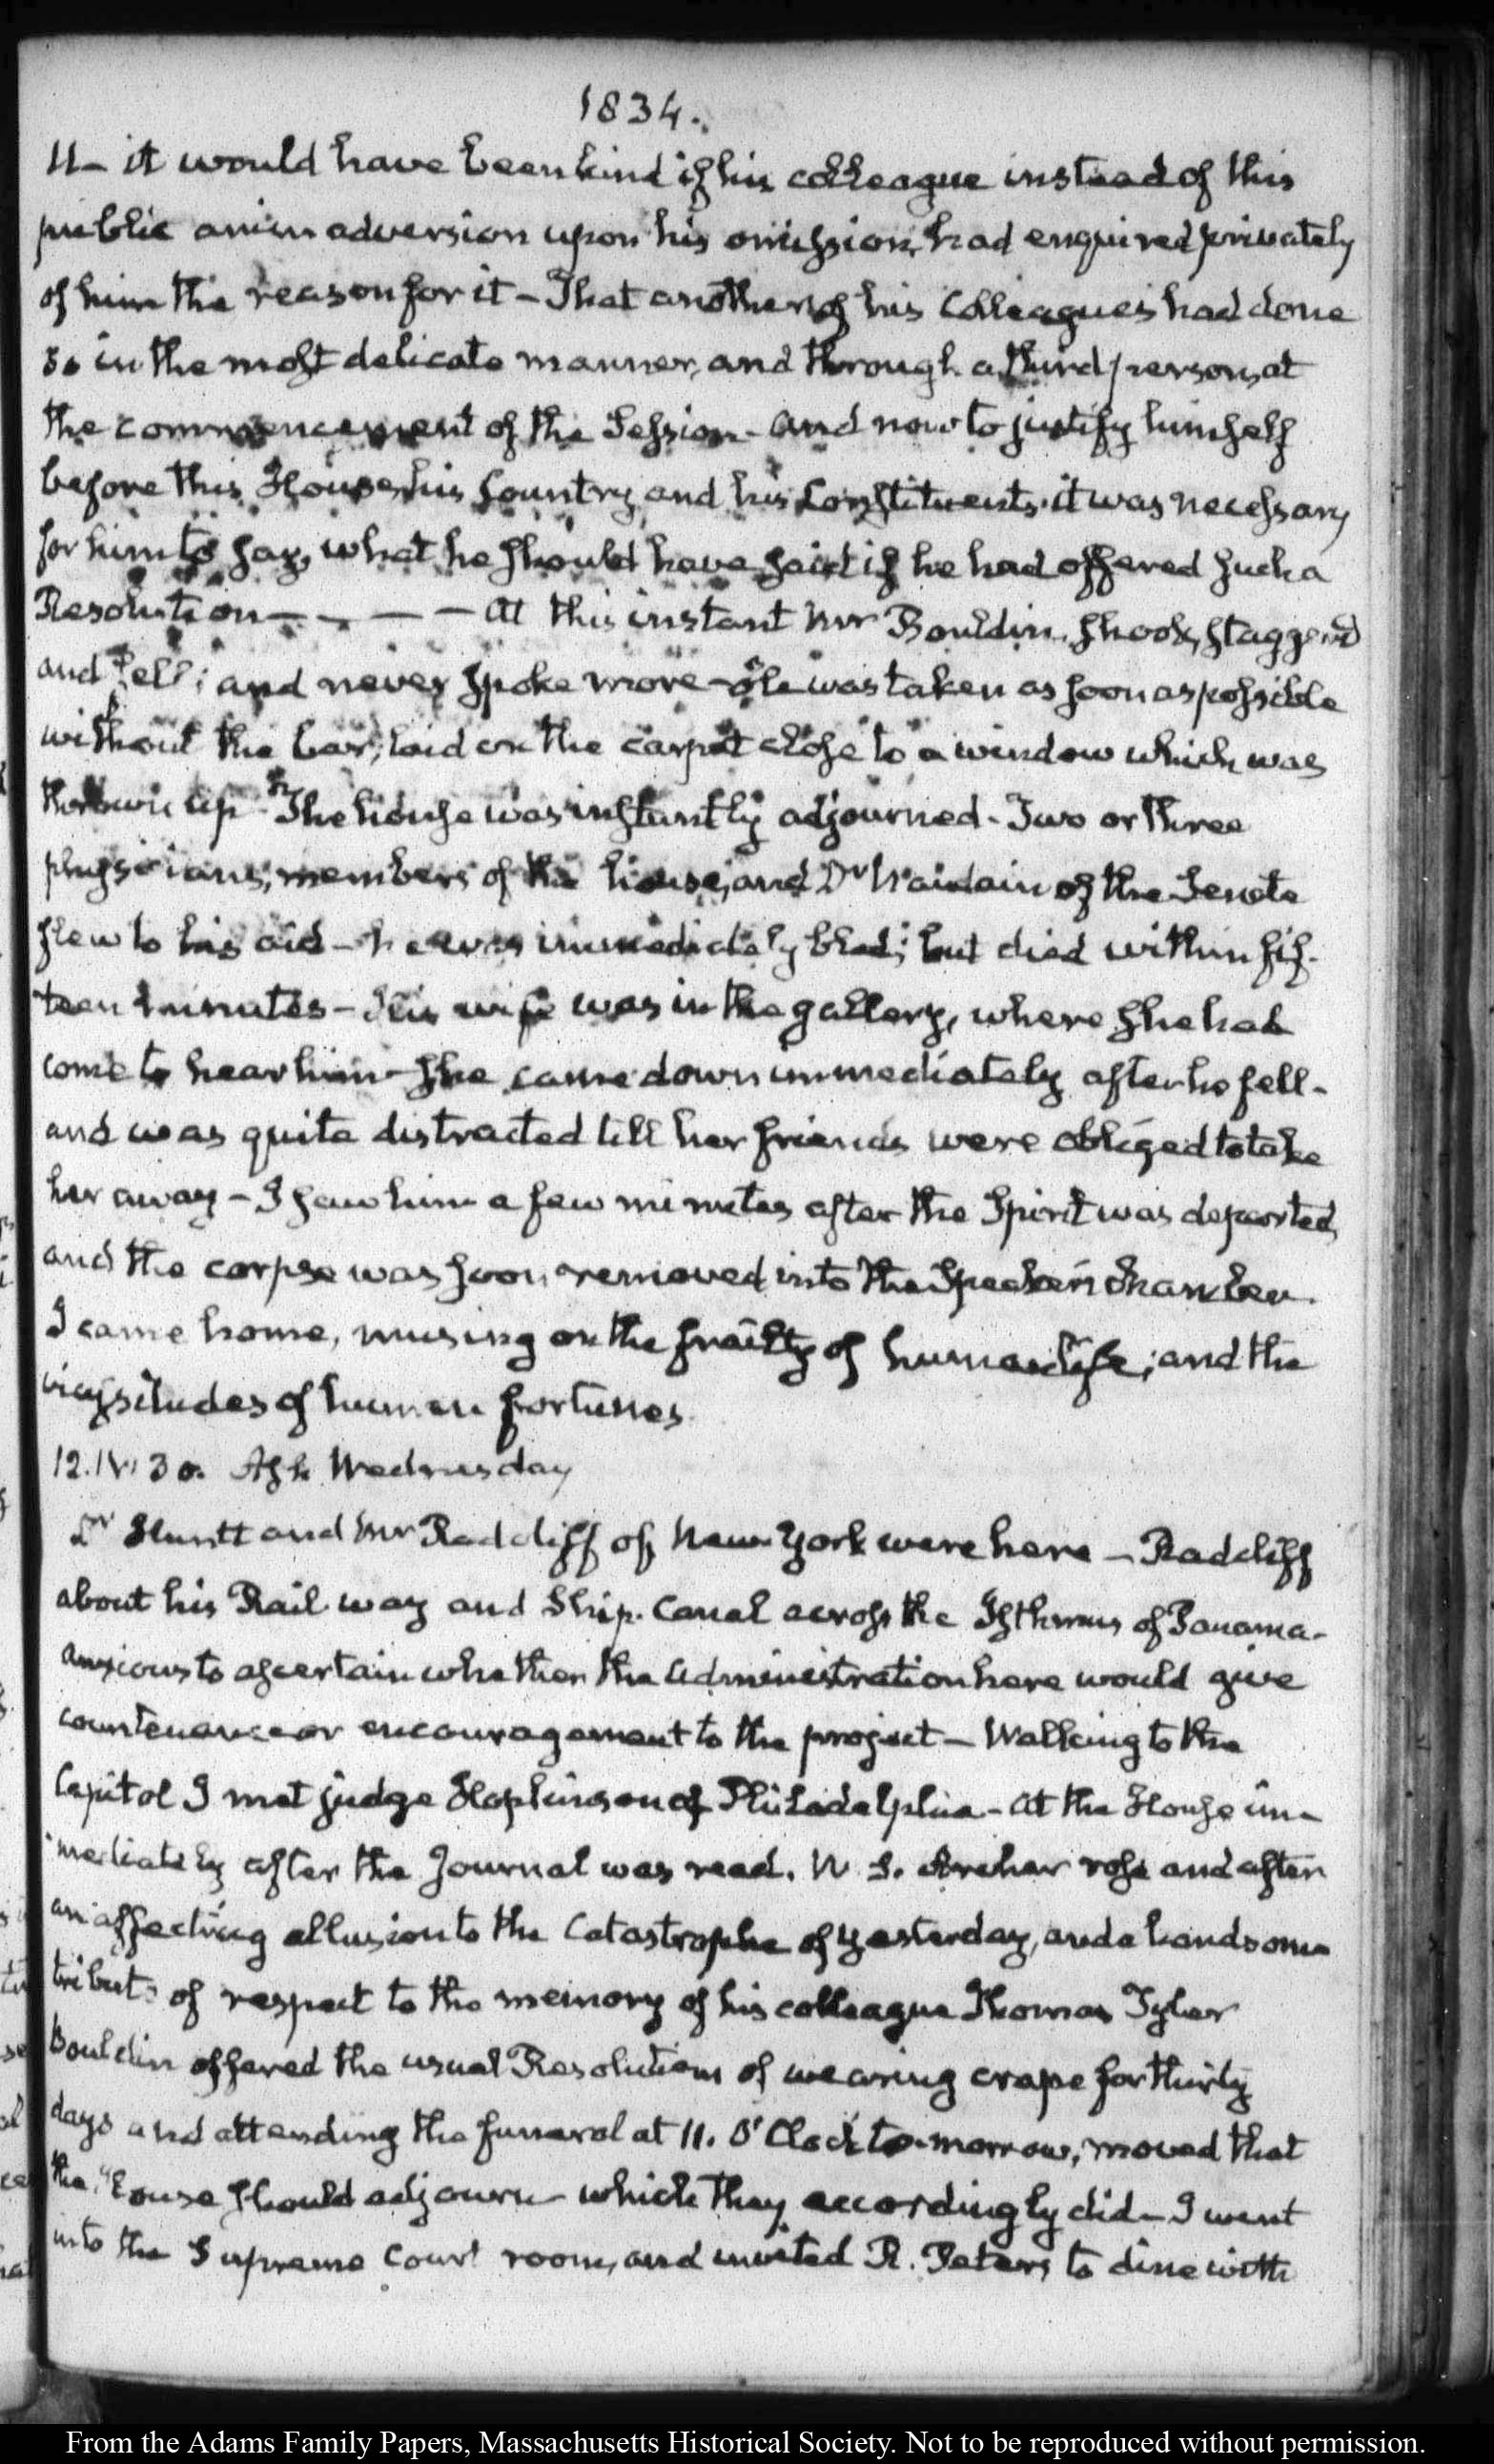 1834.
11— it would have been kind if his colleague instead of this
public animadversion upon his omission, had enquired privately
of him the reason for it — That another of his Colleagues had done
so in the most delicate manner, and through a third person, at
the commencement of the Session — and now to justify himself
before this House, his Country and his Constituents it was necessary
for him to say, what he should have said if he had offered such a
Resolution — — — — At this instant Mr Bouldin, shook, staggered
and fell; and never spoke more — He was taken as soon as possible
without the bar, laid on the carpet close to a window which was
thrown up — The house was instantly adjourned — Two or three
physicians, members of the house, and Dr Naudain of the Senate
flew to his aid — he was immediately bled; but died within fif-
teen minutes — His wife was in the gallery, where she had
come to hear him — she came down immediately after he fell —
and was quite distracted till her friends were obliged to take
her away — I saw him a few minutes after the Spirit was departed,
and the corpse was soon removed into the Speaker's Chamber.
I came home, musing on the frailty of human life; and the
vicissitudes of human fortunes.
12. IV. 30. Ash Wednesday
Dr Huntt and Mr Radcliff of New York were here — Radcliff
about his Rail way and Ship-Canal across the Isthmus of Panama —
anxious to ascertain whether the Administration here would give
countenance or encouragement to the project — Walking to the
Capitol I met judge Hopkinson of Philadelphia — At the House im-
mediately after the Journal was read. W. S. Archer rose and after
an affecting allusion to the Catastrophe of yesterday, and a handsome
tribute of respect to the memory of his colleague Thomas Tyler
Bouldin offered the usual Resolutions of wearing crape for thirty
days and attending the funeral at 11. O'Clock to-morrow, moved that
the House should adjourn — which they accordingly did — I went
into the Supreme Court room, and invited R. Peters to dine with
From the Adams Family Papers, Massachusetts Historical Society. Not to be reproduced without permission.